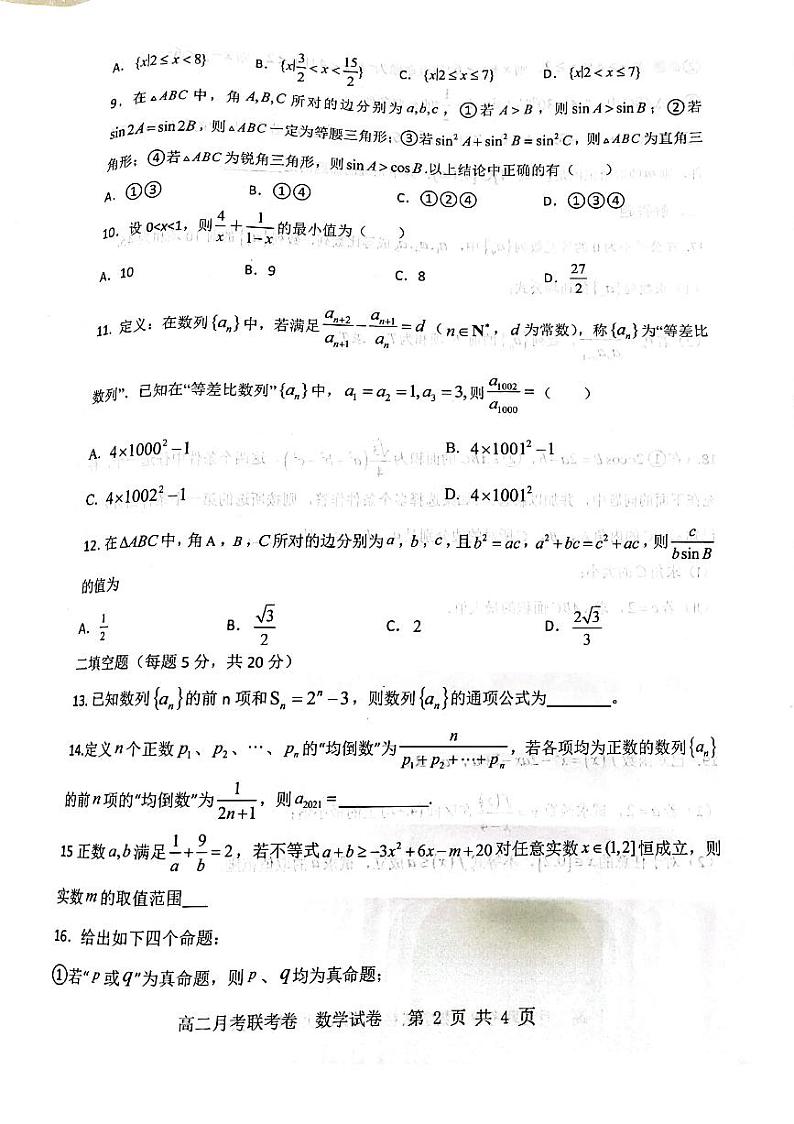 A. {x|2≤x<8} B. {x|3/2<x<15/2} C. {x|2≤x≤7} D. {x|2<x≤7}
9. 在△ABC 中，角 A,B,C 所对的边分别为 a,b,c，①若 A>B，则 sin A>sin B；②若
sin2A=sin2B，则△ABC 一定为等腰三角形；③若sin² A+sin² B=sin² C，则△ABC 为直角三
角形；④若△ABC 为锐角三角形，则sin A>cos B.以上结论中正确的有（ ）
A. ①③ B. ①④ C. ①②④ D. ①③④
10. 设 0<x<1，则 4/x + 1/(1-x) 的最小值为（ ）
A. 10 B. 9 C. 8 D. 27/2
11. 定义：在数列{aₙ}中，若满足 aₙ₊₂/aₙ₊₁ − aₙ₊₁/aₙ = d（n∈N*，d 为常数），称{aₙ}为“等差比
数列”. 已知在“等差比数列”{aₙ}中，a₁=a₂=1,a₃=3,则 a₁₀₀₂/a₁₀₀₀ =（ ）
A. 4×1000²−1 B. 4×1001²−1
C. 4×1002²−1 D. 4×1001²
12. 在ΔABC中，角A，B，C所对的边分别为a，b，c，且b²=ac，a²+bc=c²+ac，则 c/(b sin B)
的值为
A. 1/2 B. √3/2 C. 2 D. 2√3/3
二填空题（每题 5 分，共 20 分）
13. 已知数列{aₙ}的前 n 项和Sₙ=2ⁿ−3，则数列{aₙ}的通项公式为______。
14.定义n个正数 p₁、p₂、…、pₙ的“均倒数”为 n/(p₁+p₂+…+pₙ)，若各项均为正数的数列{aₙ}
的前n项的“均倒数”为 1/(2n+1)，则a₂₀₂₁=________.
15 正数a,b满足 1/a + 9/b = 2，若不等式a+b≥−3x²+6x−m+20对任意实数x∈(1,2]恒成立，则
实数m的取值范围___
16. 给出如下四个命题：
①若“p或q”为真命题，则p、q均为真命题；
高二月考联考卷 数学试卷 第 2 页 共 4 页